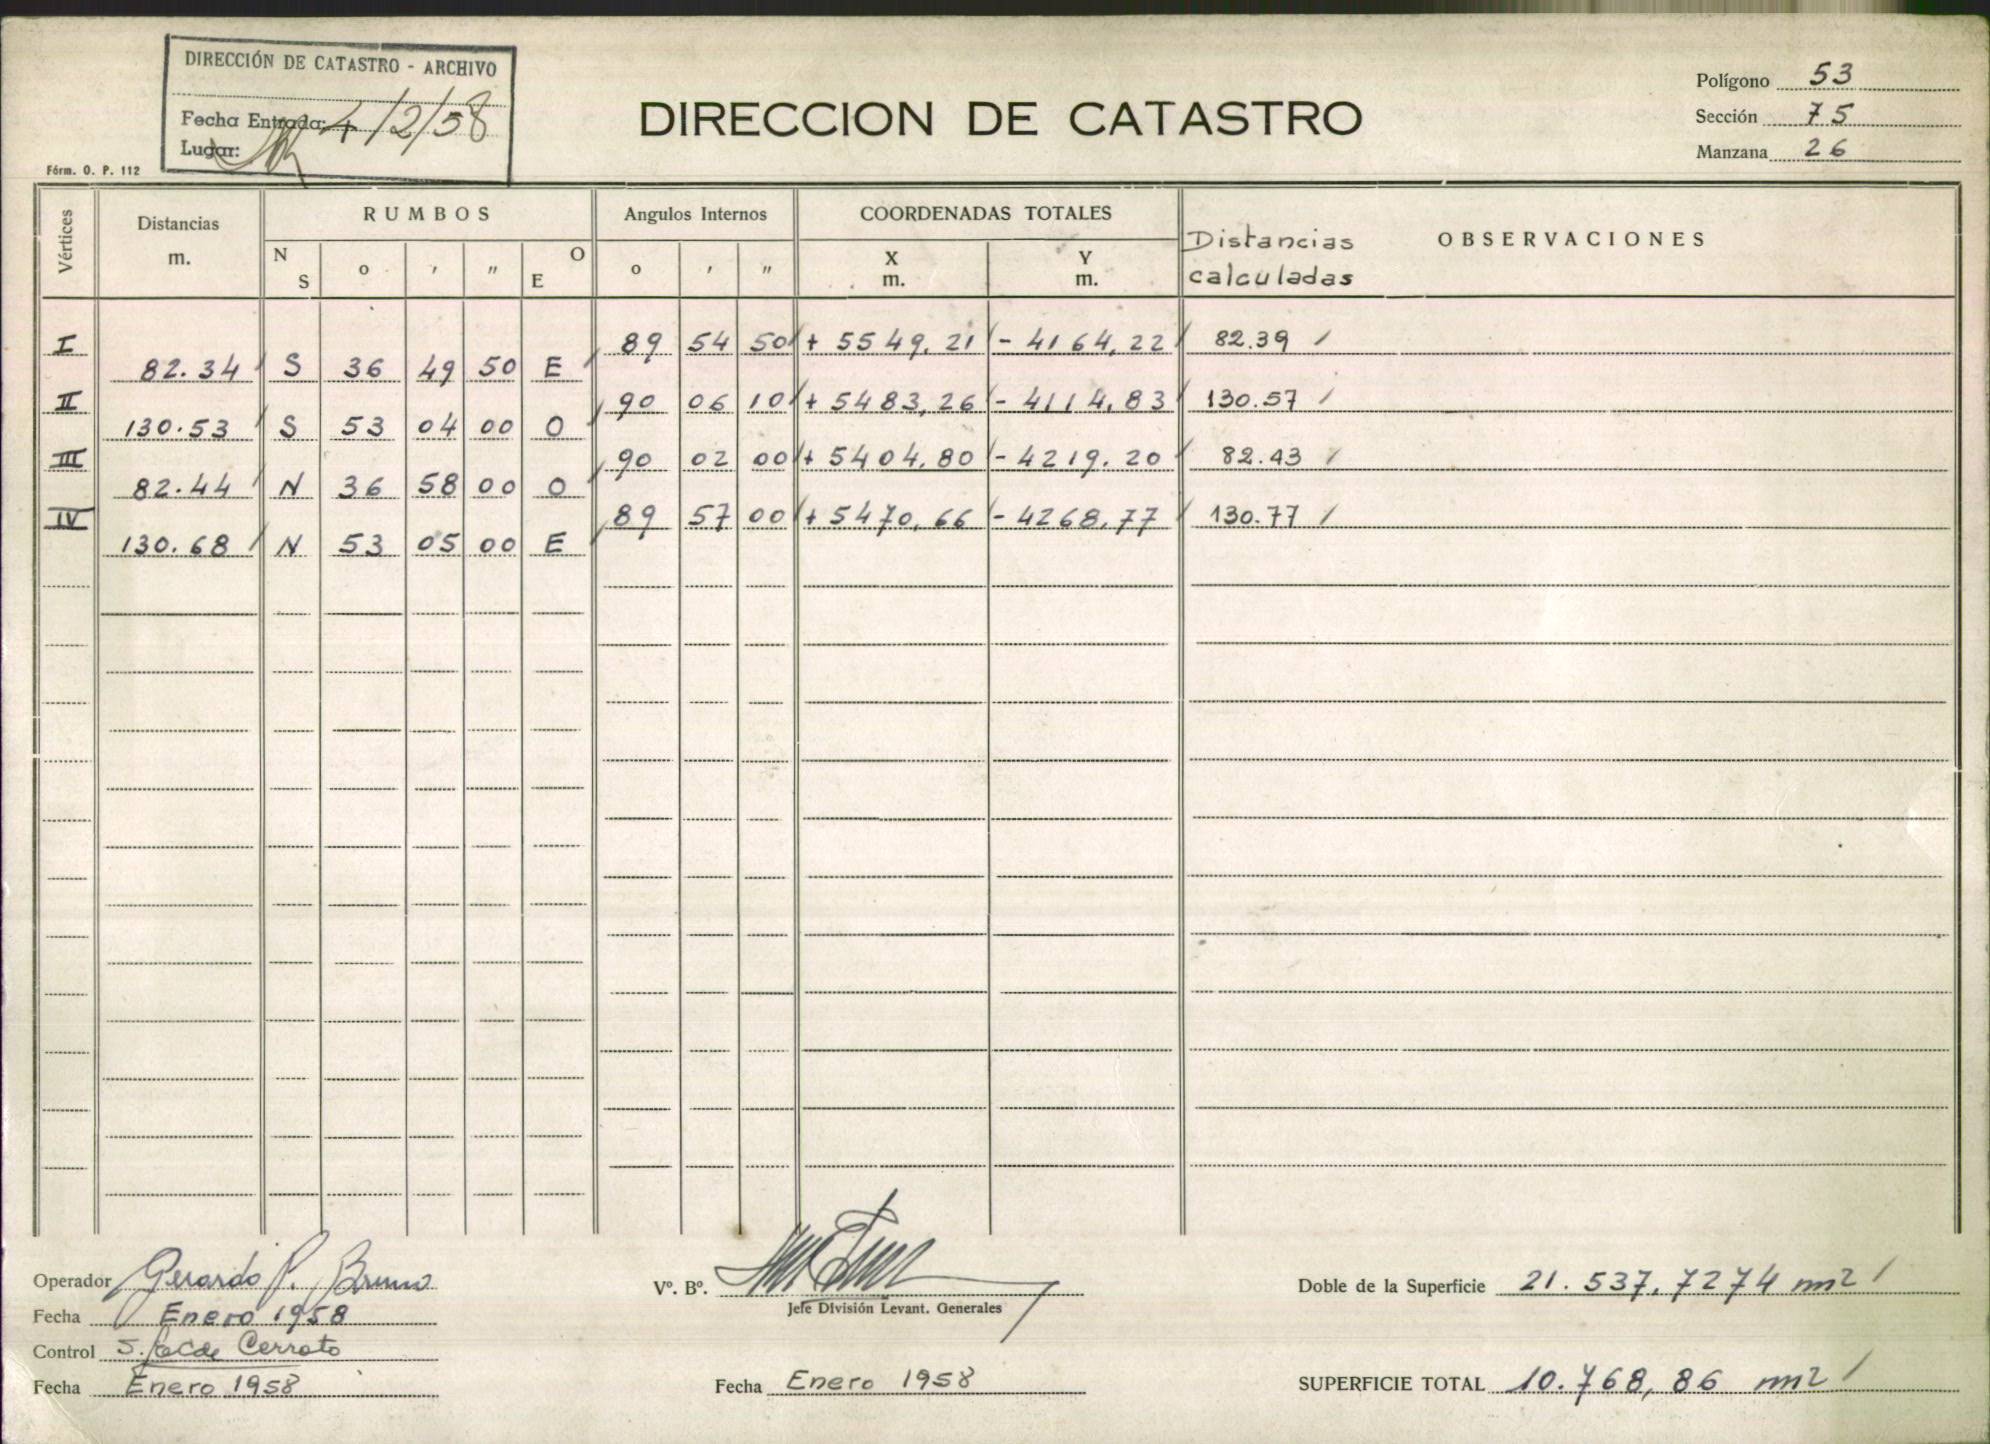 DIRECCIÓN DE CATASTRO - ARCHIVO
Fecha Entrada: 4/2/58
Lugar:
Fórm. O. P. 112
DIRECCION DE CATASTRO
Polígono 53
Sección 75
Manzana 26
Vértices Distancias m. RUMBOS Angulos Internos COORDENADAS TOTALES Distancias calculadas OBSERVACIONES
N S o ' " O E o ' " X m. Y m.
I 89 54 50 + 5549,21 - 4164,22 82.39
82.34 S 36 49 50 E
II 90 06 10 + 5483,26 - 4114,83 130.57
130.53 S 53 04 00 O
III 90 02 00 + 5404,80 - 4219,20 82.43
82.44 N 36 58 00 O
IV 89 57 00 + 5470,66 - 4268,77 130.77
130.68 N 53 05 00 E
Operador Gerardo P. Bruno
Fecha Enero 1958
Control S. Cerrato
Fecha Enero 1958
Vº. Bº.
Jefe División Levant. Generales
Fecha Enero 1958
Doble de la Superficie 21.537,7274 m2
SUPERFICIE TOTAL 10.768,86 m2